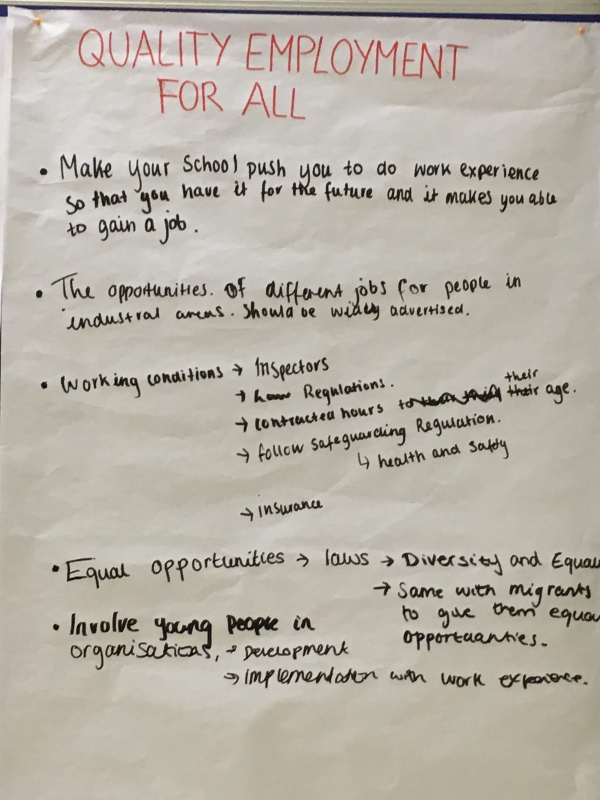 QUALITY EMPLOYMENT
FOR ALL
• Make your School push you to do work experience
so that you have it for the future and it makes you able
to gain a job.
• The opportunities. of different jobs for people in
industral areas. Should be widly advertised.
• Working conditions → Inspectors
→ Regulations.
→ contracted hours their
their age.
→ follow safeguarding Regulation.
↳ health and safdy
→ insurance
• Equal opportunities → laws → Diversity and Equal
→ Same with migrants
to give them equa
opportuanties.
• Involve young people in
organisations, → Development
→ Implementation with work experience.